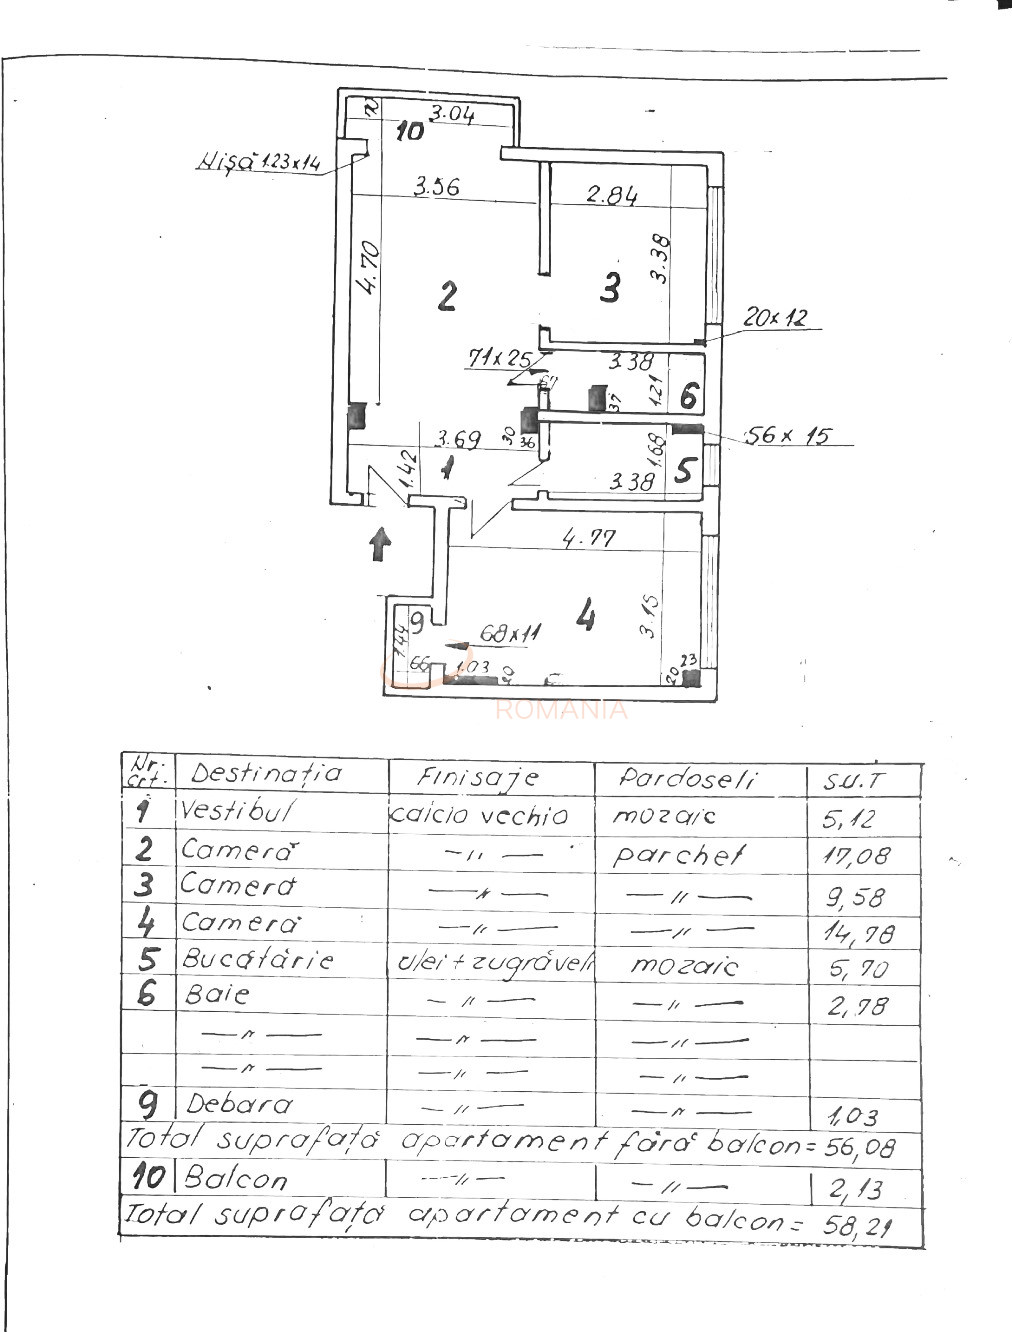 70
3.04
10
Nișă 1.23x14
3.56
2.84
4.70
3.38
2
3
20x12
71x25
3.38
67
1.21
37
6
3.69
30
36
1.68
56x 15
1
1.42
5
3.38
4.77
4
3.15
9
1.44
68x11
66
1.03
20
23
20
ROMANIA
Nr. crt. Destinația Finisaje Pardoseli S.U.T
1 Vestibul calcio vechio mozaic 5,12
2 Cameră —〃— parchet 17,08
3 Cameră —〃— —〃— 9,58
4 Cameră —〃— —〃— 14,78
5 Bucătărie ulei + zugrăveli mozaic 5,70
6 Baie —〃— —〃— 2,78
—〃— —〃— —〃—
—〃— —〃— —〃—
9 Debara —〃— —〃— 1,03
Total suprafață apartament fără balcon = 56,08
10 Balcon —〃— —〃— 2,13
Total suprafață apartament cu balcon = 58,21